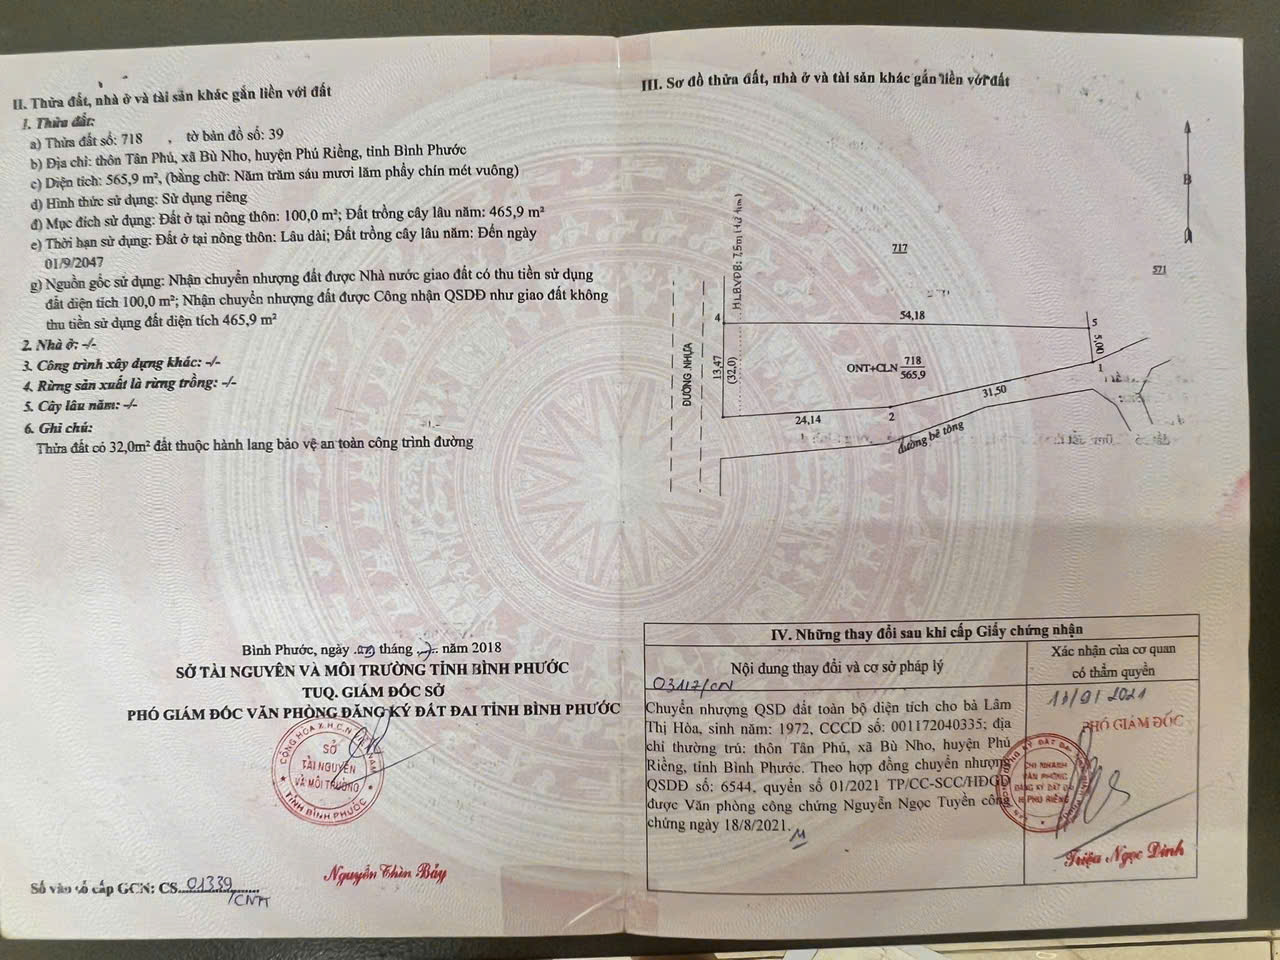 II. Thửa đất, nhà ở và tài sản khác gắn liền với đất
1. Thửa đất:
a) Thửa đất số: 718 , tờ bản đồ số: 39
b) Địa chỉ: thôn Tân Phú, xã Bù Nho, huyện Phú Riềng, tỉnh Bình Phước
c) Diện tích: 565,9 m², (bằng chữ: Năm trăm sáu mươi lăm phẩy chín mét vuông)
d) Hình thức sử dụng: Sử dụng riêng
đ) Mục đích sử dụng: Đất ở tại nông thôn: 100,0 m²; Đất trồng cây lâu năm: 465,9 m²
e) Thời hạn sử dụng: Đất ở tại nông thôn: Lâu dài; Đất trồng cây lâu năm: Đến ngày
01/9/2047
g) Nguồn gốc sử dụng: Nhận chuyển nhượng đất được Nhà nước giao đất có thu tiền sử dụng
đất diện tích 100,0 m²; Nhận chuyển nhượng đất được Công nhận QSDĐ như giao đất không
thu tiền sử dụng đất diện tích 465,9 m²
2. Nhà ở: -/-
3. Công trình xây dựng khác: -/-
4. Rừng sản xuất là rừng trồng: -/-
5. Cây lâu năm: -/-
6. Ghi chú:
Thửa đất có 32,0m² đất thuộc hành lang bảo vệ an toàn công trình đường
Bình Phước, ngày tháng năm 2018
SỞ TÀI NGUYÊN VÀ MÔI TRƯỜNG TỈNH BÌNH PHƯỚC
TUQ. GIÁM ĐỐC SỞ
PHÓ GIÁM ĐỐC VĂN PHÒNG ĐĂNG KÝ ĐẤT ĐAI TỈNH BÌNH PHƯỚC
SỞ
TÀI NGUYÊN
VÀ MÔI TRƯỜNG
TỈNH BÌNH PHƯỚC
Nguyễn Thìn Bảy
Số vào sổ cấp GCN: CS 01339
/CNPR
III. Sơ đồ thửa đất, nhà ở và tài sản khác gắn liền với đất
B
717
571
HLBVĐB: 7,5m (từ tim)
ĐƯỜNG NHỰA
4
54,18
5
5,00
1
13,47
(32,0)
ONT+CLN 718
565,9
31,50
24,14
2
đường bê tông
IV. Những thay đổi sau khi cấp Giấy chứng nhận
Nội dung thay đổi và cơ sở pháp lý
Xác nhận của cơ quan
có thẩm quyền
03117/CN
Chuyển nhượng QSD đất toàn bộ diện tích cho bà Lâm
Thị Hòa, sinh năm: 1972, CCCD số: 001172040335; địa
chỉ thường trú: thôn Tân Phú, xã Bù Nho, huyện Phú
Riềng, tỉnh Bình Phước. Theo hợp đồng chuyển nhượng
QSDĐ số: 6544, quyển số 01/2021 TP/CC-SCC/HĐGD
được Văn phòng công chứng Nguyễn Ngọc Tuyền công
chứng ngày 18/8/2021.
PHÓ GIÁM ĐỐC
CHI NHÁNH
VĂN PHÒNG
ĐĂNG KÝ ĐẤT ĐAI
H. PHÚ RIỀNG
Triệu Ngọc Dinh